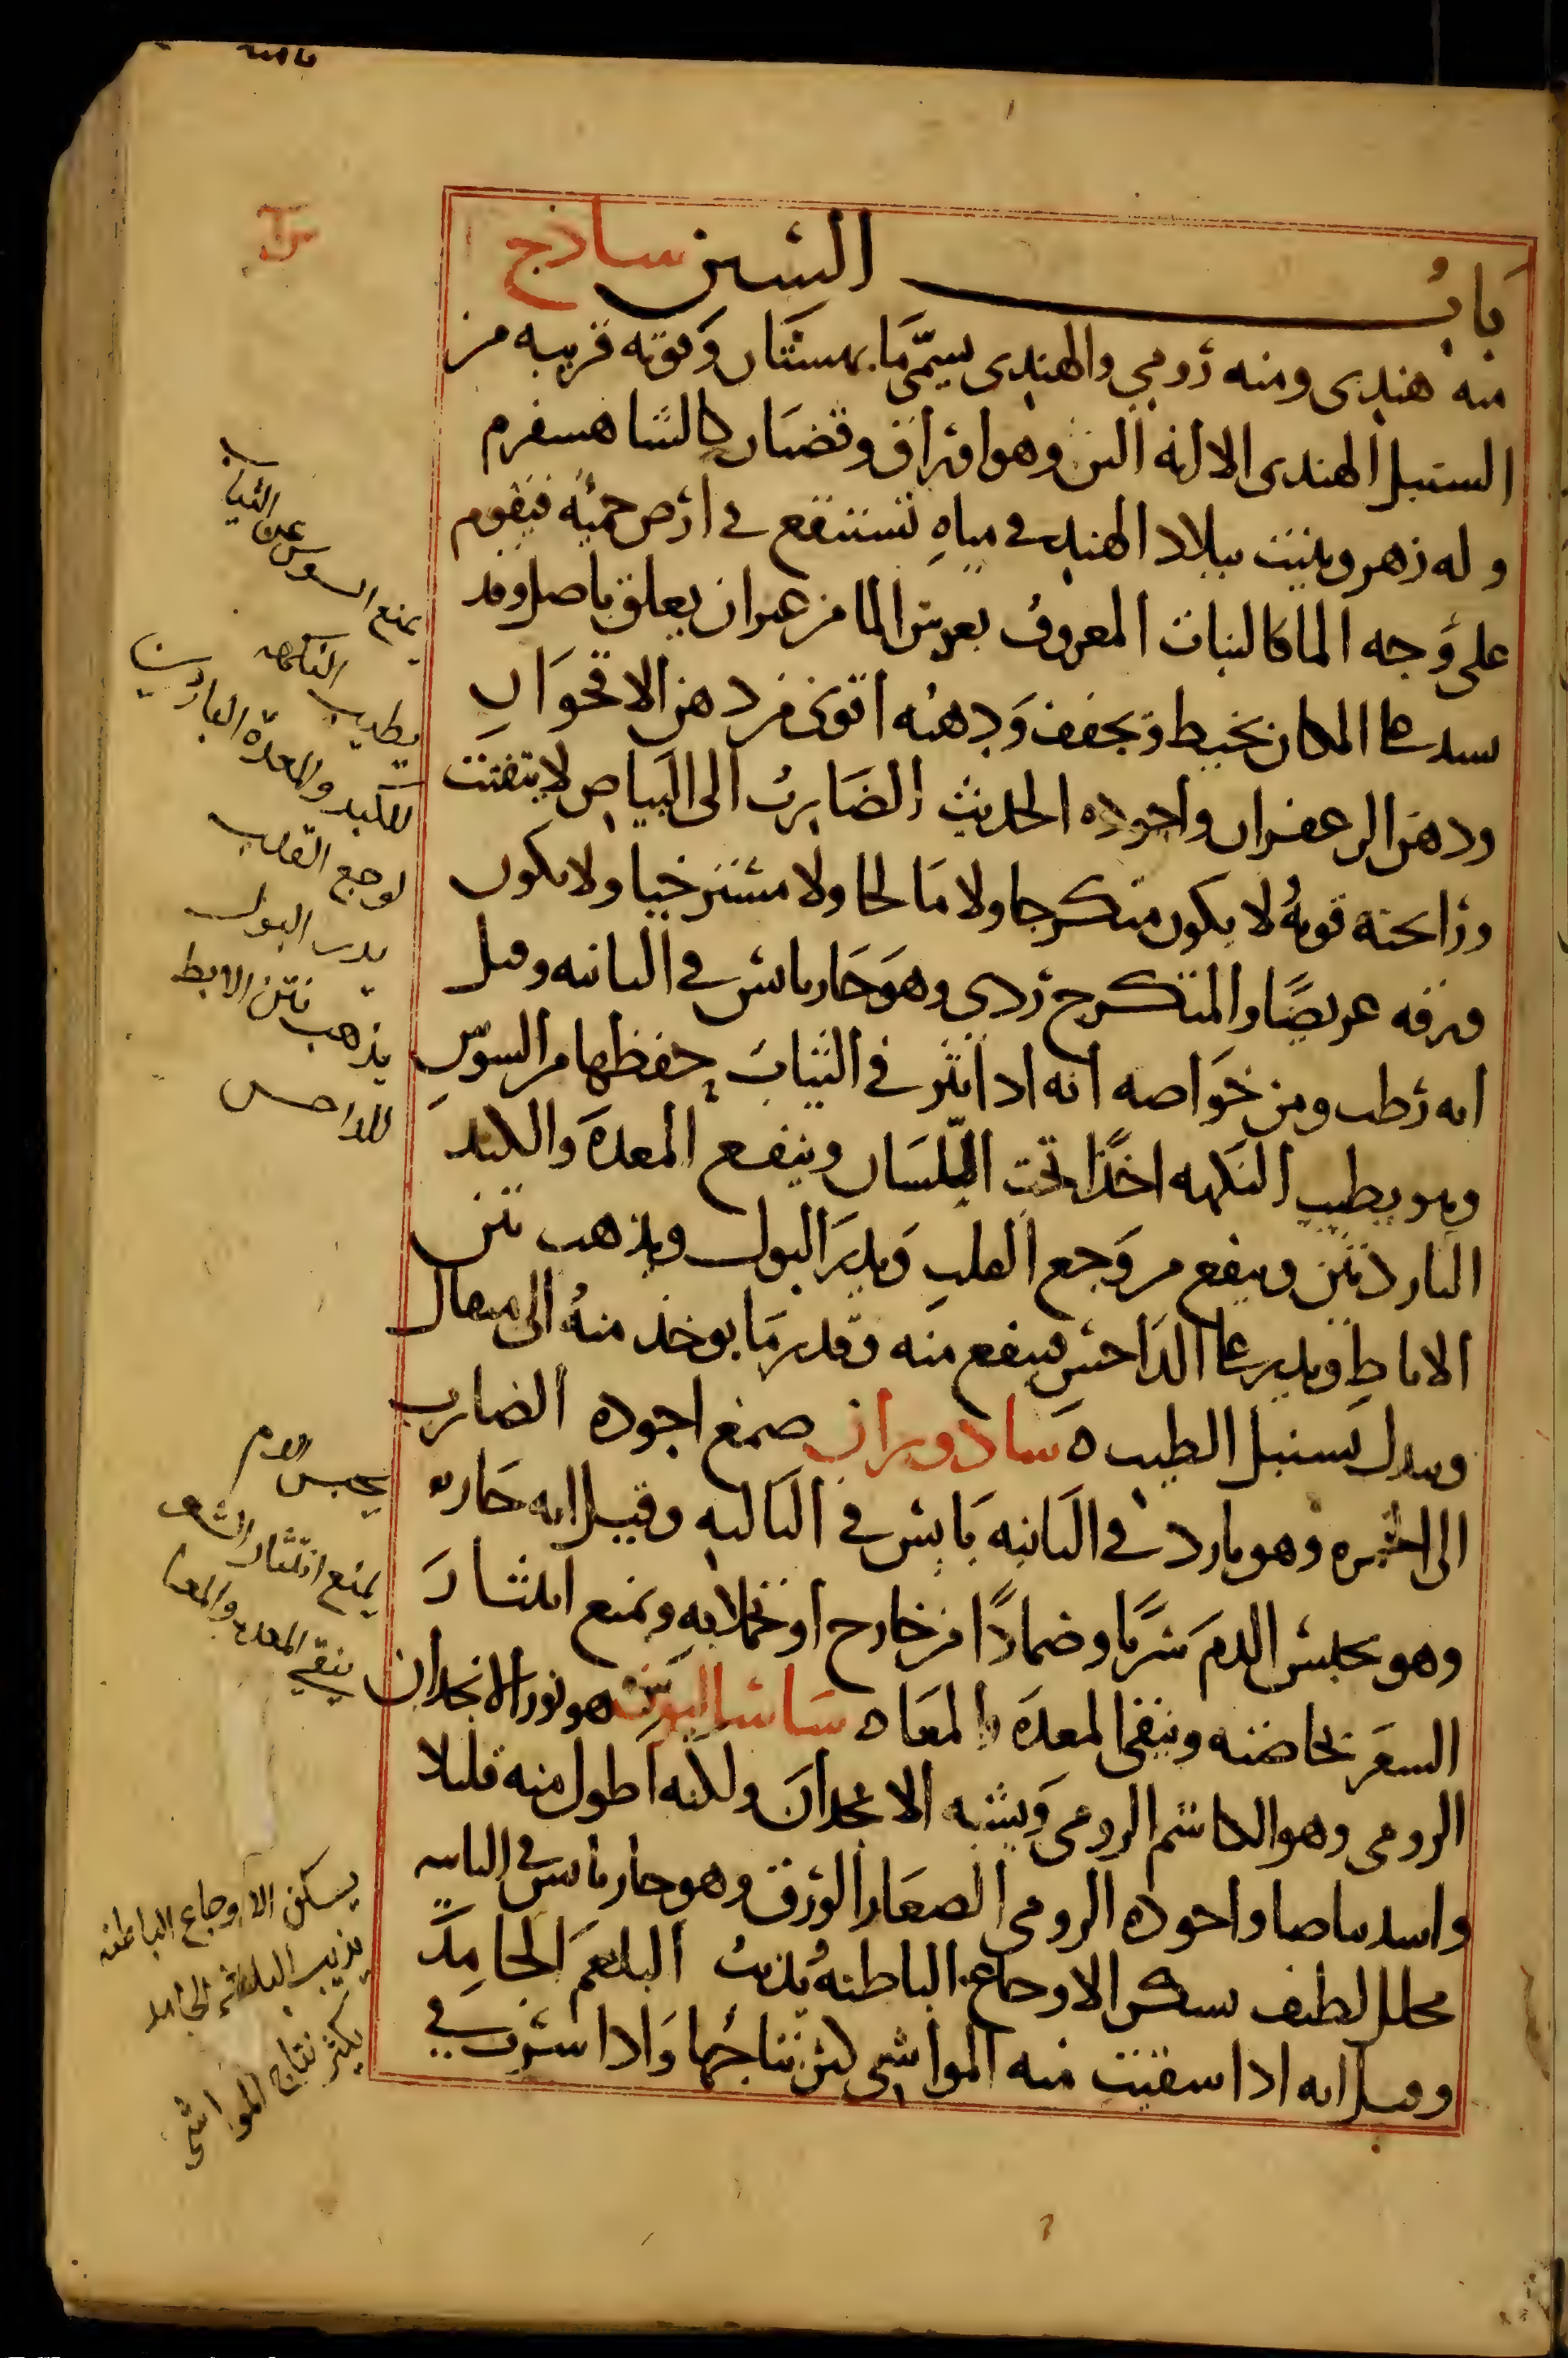 باب السين ساذج
منه هندى ومنه رومي والهندى يسمى مابهستان وقوته قريبه من
السنبل الهندى الا انه الين وهو اوراق وقضبان كالشاهسفرم
وله زهر وينبت ببلاد الهند في مياه تستنقع في ارض حمئه فيقوم
على وجه الما كالنبات المعروف بعدس الما من غير ان يعلق باصل وقد
المكان بخيط ويجفف ودهنه اقوى من دهن الاقحوان
ودهن الزعفران واجوده الحديث الضارب الى البياض لا يتفتت
ورائحته قويه لا يكون متكرجا ولا مالحا ولا مسترخيا ولا يكون
ورقه عريضا والمتكرج ردي وهو حار يابس في الثانيه وقيل
انه رطب ومن خواصه انه اذا نثر في الثياب حفظها من السوس
وهو يطيب النكهه اخذا تحت اللسان وينفع المعدة والكبد
الباردتين وينفع من وجع القلب ويدر البول ويذهب نتن
الاباط ويذر على الداحس فينفع منه وقدر ما يوخذ منه الى مثقال
وبدله سنبل الطيب ه سادوران صمغ اجوده الضارب
الى الحمره وهو بارد في الثانيه يابس في الثالثه وقيل انه حار
وهو يحبس الدم شربا وضمادا من خارج او تحملا به ويمنع انتثار
الشعر بخاصته وينقى المعدة والمعا ه ساساليوس هو نور الانجدان
الرومى وهو الكاشم الرومى ويشبه الانجدان ولكنه اطول منه قليلا
واشد بياضا واجوده الرومى الصغار الورق وهو حار يابس في الثانيه
محلل لطيف يسكن الاوجاع الباطنه يذيب البلغم الجامد
وقيل انه اذا سقيت منه المواشى كثر نتاجها واذا شرب في
يمنع السوس عن الثياب
يطيب النكهه
للكبد والمعدة الباردتين
لوجع القلب
يدر البول
يذهب نتن الابط
للداحس
يحبس الدم
يمنع انتثار الشعر
ينقي المعده والمعا
يسكن الاوجاع الباطنه
يذيب البلغم الجامد
يكثر نتاج المواشى